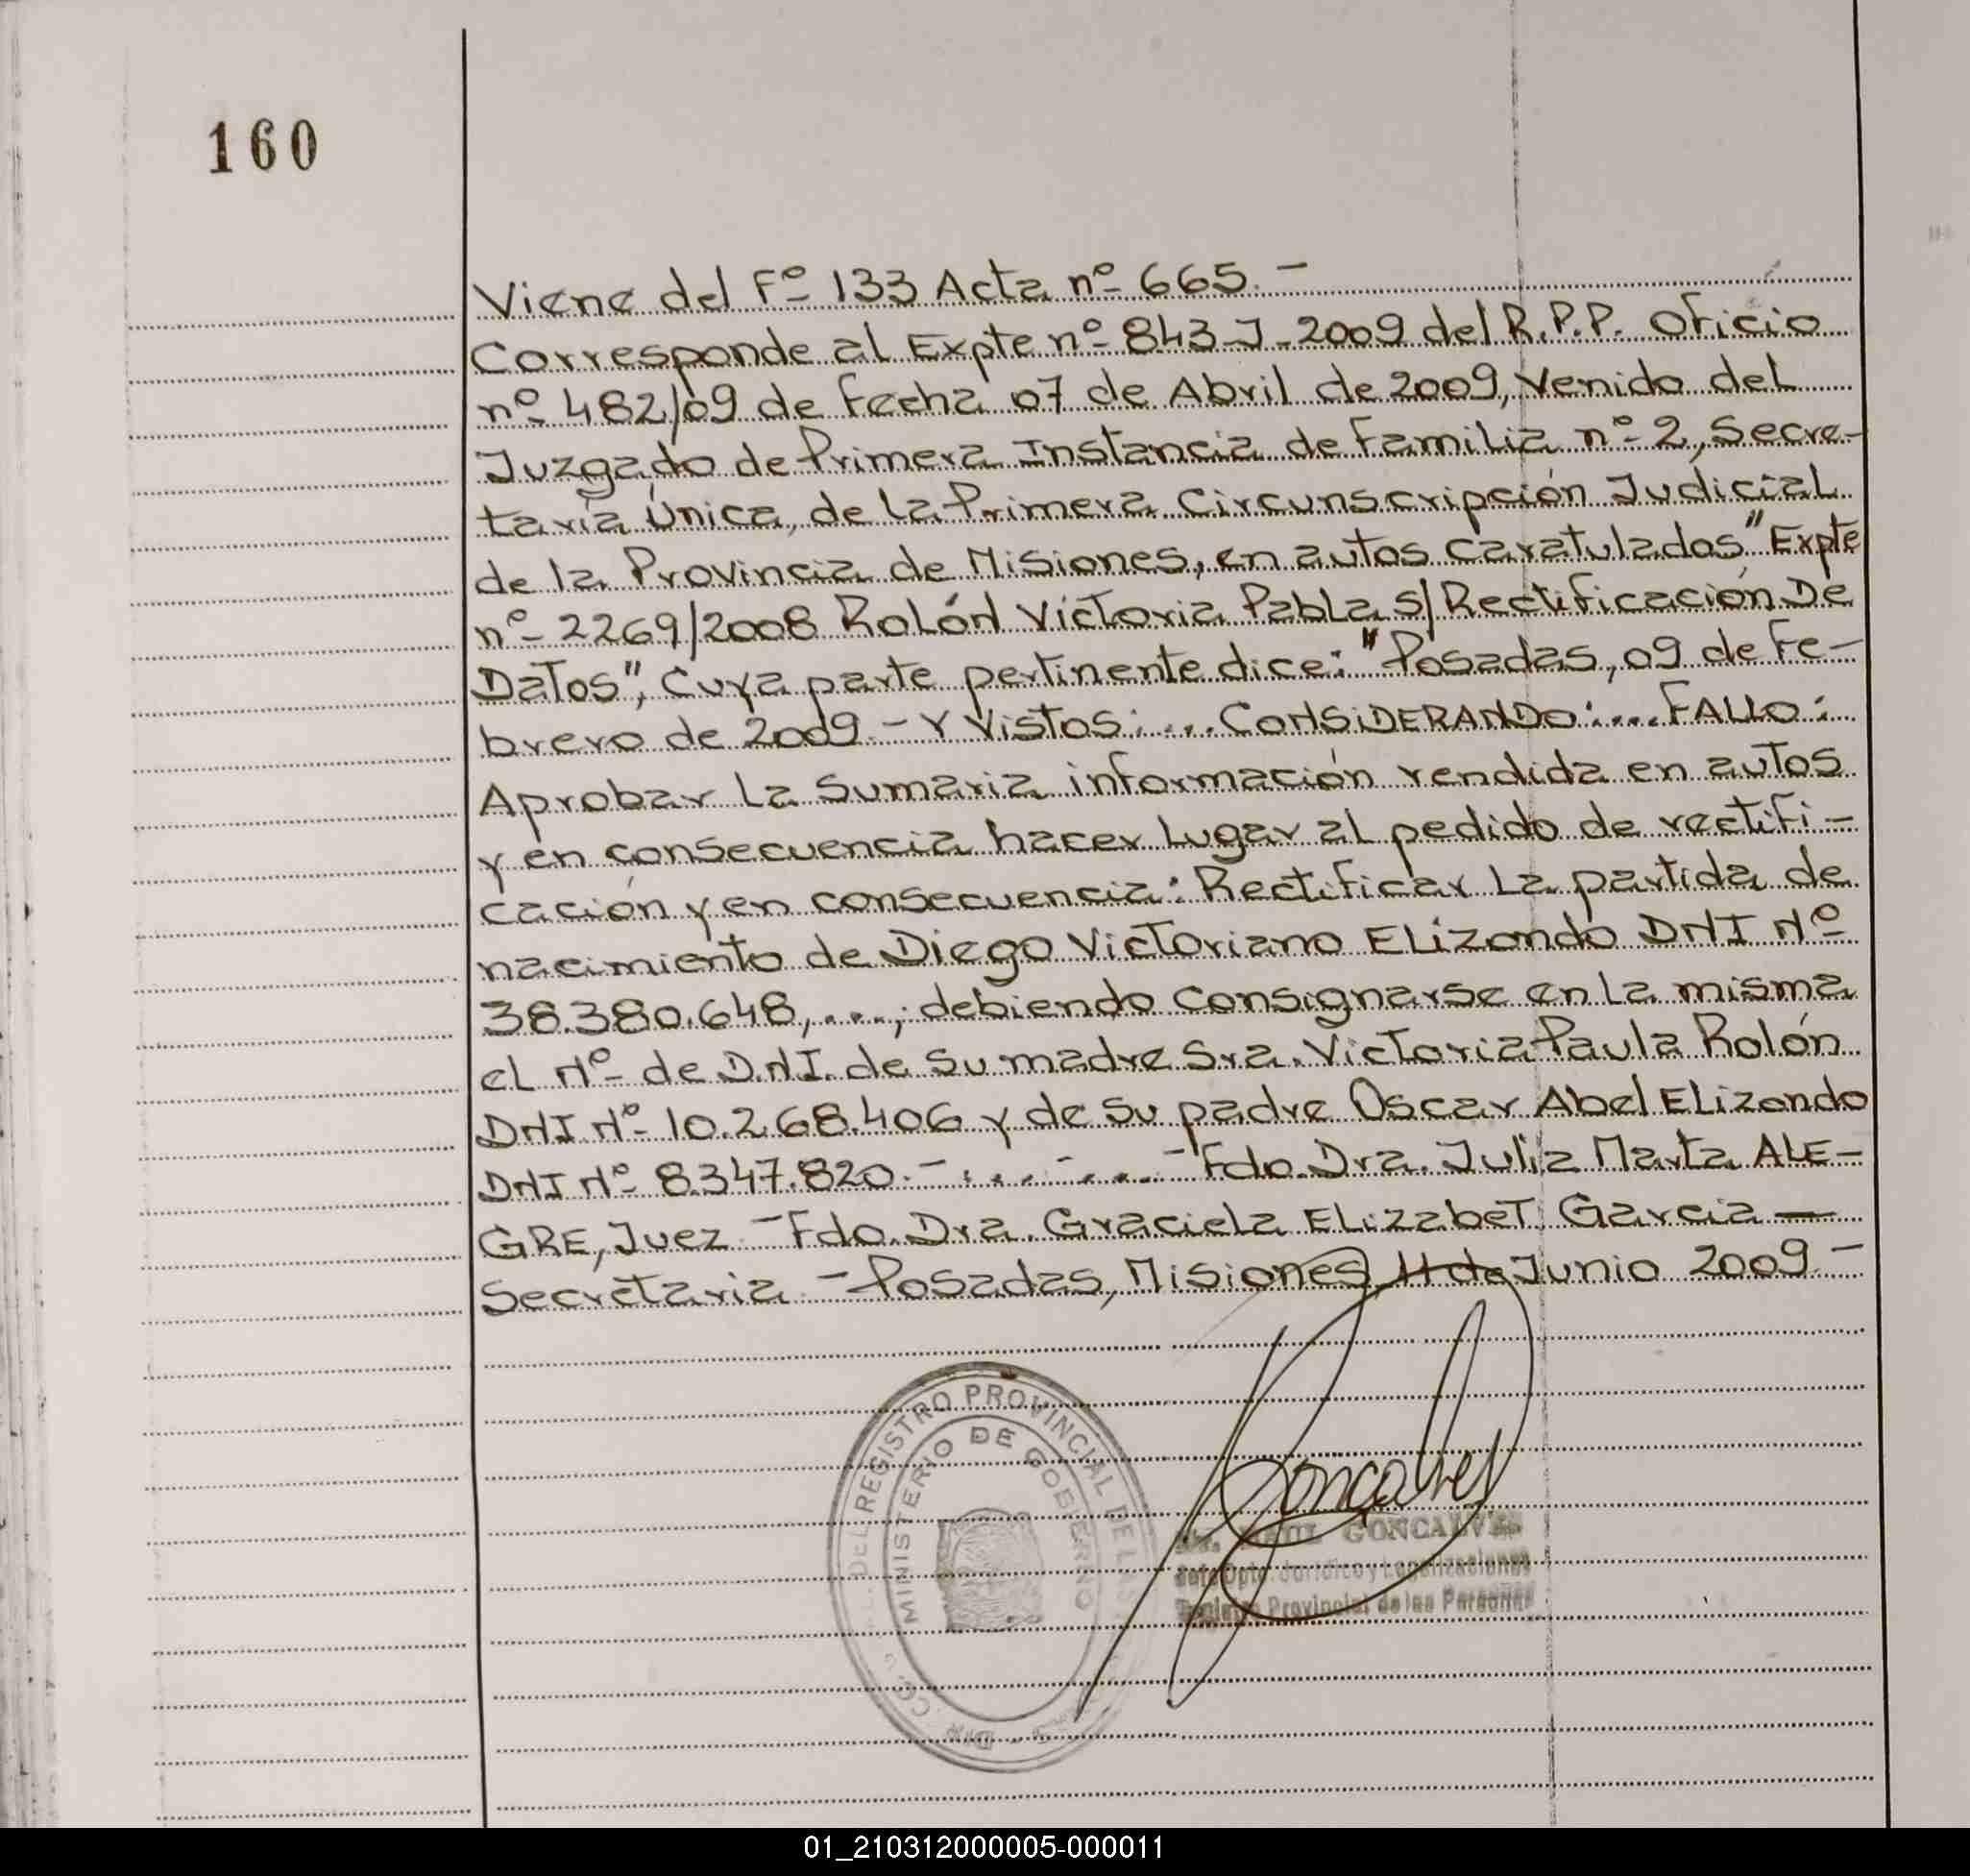 160
Viene del Fº 133 Acta nº 665.-
Corresponde al Expte nº 843-J-2009 del R.P.P. Oficio
nº 482/09 de Fecha 07 de Abril de 2009, Venido del
Juzgado de Primera Instancia de Familia nº 2, Secre-
taría Única, de la Primera Circunscripción Judicial
de la Provincia de Misiones, en autos caratulados "Expte
nº 2269/2008 Rolón Victoria Pabla s/ Rectificación De
Datos", Cuya parte pertinente dice: "Posadas, 09 de Fe-
brero de 2009.- Y Vistos:.... CONSIDERANDO:.... FALLO:
Aprobar La Sumaria información rendida en autos
y en consecuencia hacer Lugar al pedido de rectifi-
cación y en consecuencia: Rectificar La partida de
nacimiento de Diego Victoriano Elizondo DNI Nº
38.380.648,...,; debiendo consignarse en la misma
el Nº de D.N.I. de su madre Sra. Victoria Paula Rolón
DNI Nº 10.268.406 y de su padre Oscar Abel Elizondo
DNI Nº 8.347.820.-....-....-Fdo. Dra. Julia Marta ALE-
GRE, Juez.-Fdo. Dra. Graciela Elizabet Garcia-
Secretaria.-Posadas, Misiones 11 de Junio 2009.-
DEL REGISTRO PROVINCIAL DE LAS
MINISTERIO DE GOBIERNO
Goncalves
RAUL GONCALVES
Jefe Dpto. Jurídico y Legalizaciones
Registro Provincial de las Personas
01_210312000005-000011